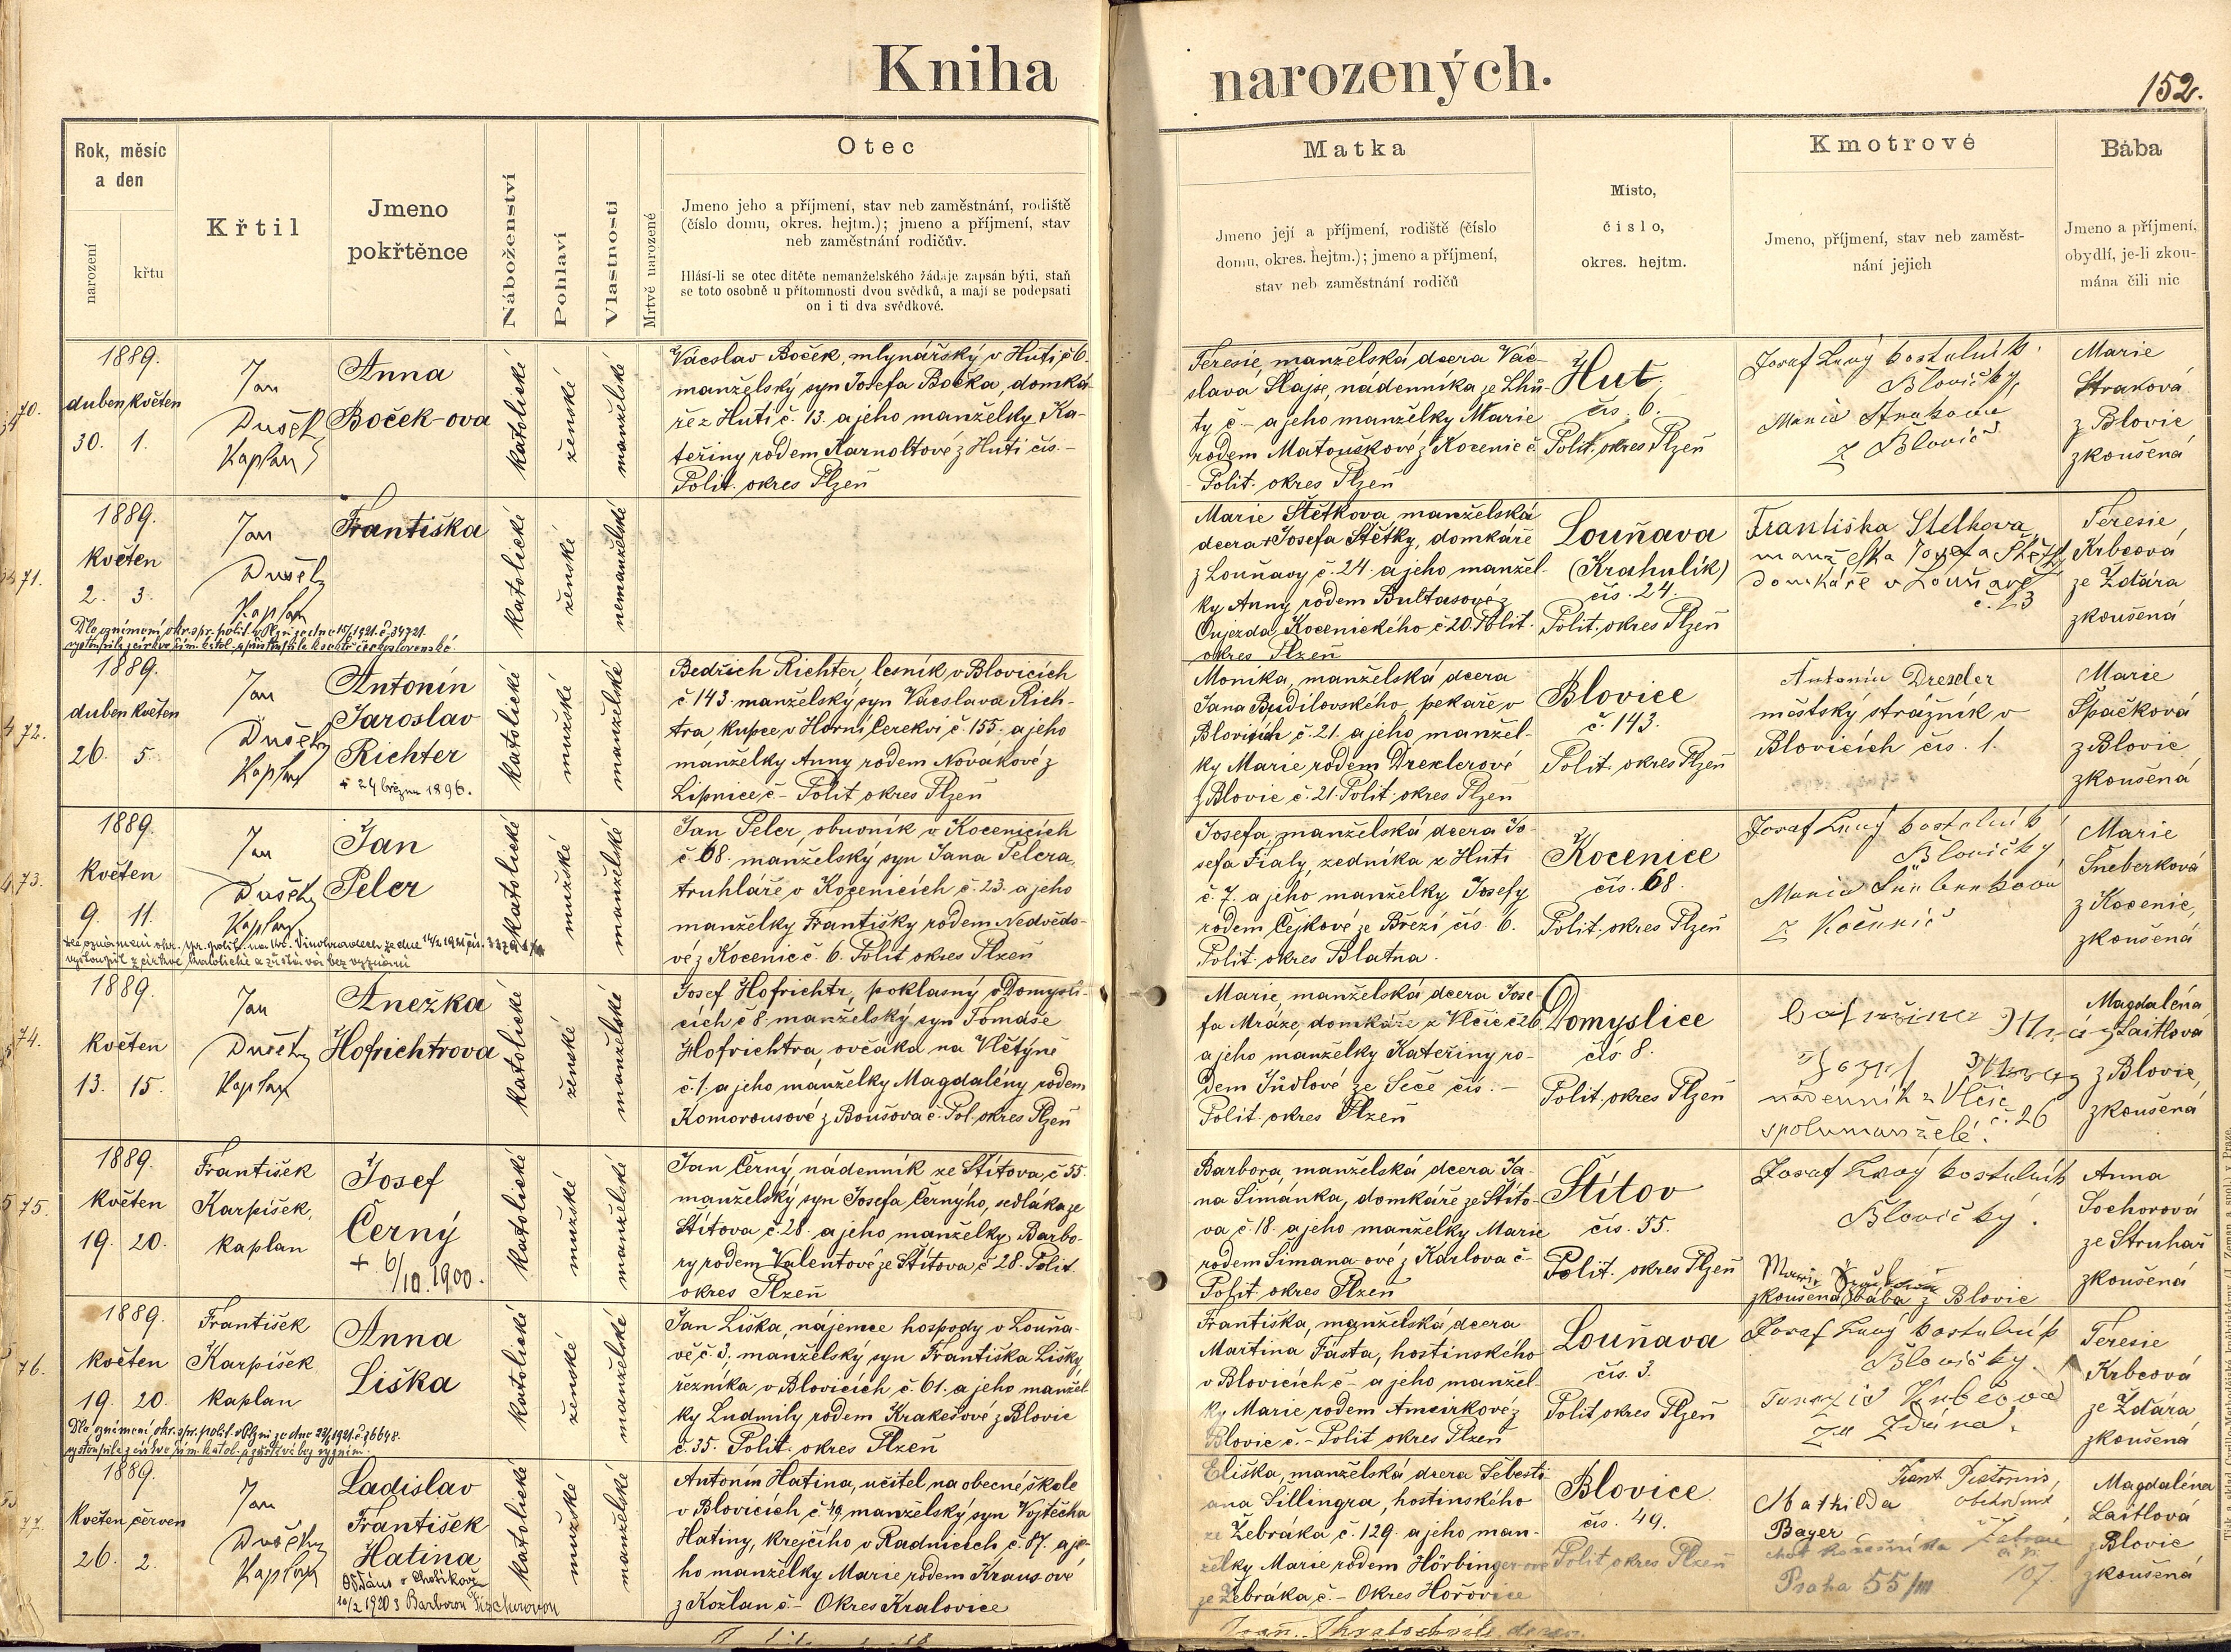 Kniha narozených.
152.
Rok, měsíc
a den
narození
křtu
Křtil
Jmeno
pokřtěnce
Náboženství
Pohlaví
Vlastnosti
Mrtvě narozené
Otec
Jmeno jeho a příjmení, stav neb zaměstnání, rodiště
(číslo domu, okres. hejtm.); jmeno a příjmení, stav
neb zaměstnání rodičův.
Hlásí-li se otec dítěte nemanželského žádaje zapsán býti, staň
se toto osobně u přítomnosti dvou svědků, a mají se podepsati
on i ti dva svědkové.
Matka
Jmeno její a příjmení, rodiště (číslo
domu, okres. hejtm.); jmeno a příjmení,
stav neb zaměstnání rodičů
Místo,
číslo,
okres. hejtm.
Kmotrové
Jmeno, příjmení, stav neb zaměst-
nání jejich
Bába
Jmeno a příjmení,
obydlí, je-li zkou-
mána čili nic
70.
1889.
duben květen
30. 1.
Jan
Dušek
Kaplan
Anna
Boček-ova
katolické
ženské
manželské
Vácslav Boček, mlynářský v Huti č 6.
manželský syn Josefa Bočka, domká-
ře z Huti č. 13. a jeho manželky Ka-
teřiny rodem Karnoltové z Huti čís. -
Polit. okres Plzeň
Teresie, manželská dcera Vác-
slava Slajse, nádenníka ze Lhů-
ty č. - a jeho manželky Marie
rodem Matouškové z Kocenic č.
- Polit. okres Plzeň
Hut
čís. 6.
Polit. okres Plzeň
Josef Lavý kostelník
Blovický
Marie Straková
z Blovic
Marie
Straková
z Blovic
zkoušená
71.
1889.
květen
2. 3.
Jan
Dušek
Kaplan
Františka
katolické
ženské
nemanželské
Dle oznámení okr. spr. polit. v Plzni ze dne 15/1 1921. č. 34721.
vystoupila z církve řím. katol. a přistoupila k církvi československé.
Marie Štětkova manželská
dcera + Josefa Štětky, domkáře
z Louňavy č. 24. a jeho manžel-
ky Anny rodem Bultasové z
Oujezda Kocenického č. 20. Polit.
okres Plzeň
Louňava
(Krahulík)
čís. 24.
Polit. okres Plzeň
Františka Stětkova
manželka Josefa Štětky
domkáře v Louňavě
č. 23
Teresie
Krbcová
ze Žďára
zkoušená
72.
1889.
duben květen
26. 5.
Jan
Dušek
Kaplan
Antonín
Jaroslav
Richter
+ 24 března 1896.
katolické
mužské
manželské
Bedřich Richter, lesník v Blovicích
č 143. manželský syn Vácslava Rich-
tra, kupce v Horní Cerekvi č. 155. a jeho
manželky Anny rodem Novákové z
Lipnice č - Polit okres Plzeň
Monika, manželská dcera
Jana Budilovského, pekaře v
Blovicích č. 21. a jeho manžel-
ky Marie rodem Drexlerové
z Blovic č. 21. Polit. okres Plzeň
Blovice
č. 143.
Polit. okres Plzeň
Antonín Drexler
městský strážník v
Blovicích čís. 1.
Marie
Špačková
z Blovic
zkoušená
73.
1889.
květen
9. 11.
Jan
Dušek
Kaplan
Jan
Peler
katolické
mužské
manželské
vystoupil z církve katolické a zůstává bez vyznání
Jan Peler, obuvník v Kocenicích
č. 68. manželský syn Jana Pelera,
truhláře v Kocenicích č. 23. a jeho
manželky Františky rodem Nedvědo-
vé z Kocenic č. 6. Polit okres Plzeň
Josefa, manželská dcera Jo-
sefa Fialy, zedníka z Huti
č. 7. a jeho manželky Josefy
rodem Čejkové ze Březí čís. 6.
Polit. okres Blatna.
Kocenice
čís. 68.
Polit. okres Plzeň
Josef Lavý kostelník
Blovický
Marie Šneberková
z Kocenic
Marie
Šneberková
z Kocenic,
zkoušená
74.
1889.
květen
13. 15.
Jan
Dušek
Kaplan
Anežka
Hofrichtrova
katolické
ženské
manželské
Josef Hofrichtr, poklasný v Domysli-
cích č 8. manželský syn Tomáše
Hofrichtra, ovčáka na Vlčtýně
č. 1. a jeho manželky Magdalény rodem
Komorousové z Boušova č. Pol. okres Plzeň
Marie, manželská dcera Jose-
fa Mráze, domkáře z Vlčic č 26,
a jeho manželky Kateřiny ro-
dem Jůdlové ze Seče čís. -
Polit. okres Plzeň
Domyslice
čís 8.
Polit. okres Plzeň
Josef Mraz
nádenník z Vlčic
č. 26
spolumanželé.
Magdaléna
Laitlová
z Blovic,
zkoušená
75.
1889.
květen
19. 20.
František
Karpíšek,
kaplan
Josef
Černý
+ 6/10. 1900.
katolické
mužské
manželské
Jan Černý, nádenník ze Štítova, č 55.
manželský syn Josefa Černýho, sedláka ze
Štítova č. 28. a jeho manželky Barbo-
ry rodem Valentové ze Štítova č 28. Polit.
okres Plzeň
Barbora, manželská dcera Ja-
na Šimánka, domkáře ze Štíto-
va č. 18. a jeho manželky Marie
rodem Šimanaové z Karlova č -
Polit. okres Plzeň
Štítov
čís. 55.
Polit. okres Plzeň
Josef Lavý kostelník
Blovický.
zkoušená bába z Blovic
Anna
Sochorová
ze Struhař
zkoušená
76.
1889.
květen
19. 20.
František
Karpíšek
kaplan
Anna
Liška
katolické
ženské
manželské
Dle oznámení okr. spr. polit. v Plzni ze dne 22/3 1921. č. 36648.
vystoupila z církve řím. katol. a zůstává bez vyznání.
Jan Liška, nájemce hospody v Louňa-
vě č. 3, manželský syn Františka Lišky,
řezníka v Blovicích č. 61. a jeho manžel-
ky Ludmily rodem Krakešové z Blovic
č. 35. Polit. okres Plzeň
Františka, manželská dcera
Martina Fásta, hostinského
v Blovicích č - a jeho manžel-
ky Marie rodem Amcirkové z
Blovic č. - Polit okres Plzeň
Louňava
čís. 3.
Polit. okres Plzeň
Josef Lavý kostelník
Blovický.
Terezie Krbcová
ze Zdára.
Teresie
Krbcová
ze Žďára
zkoušená
77.
1889.
květen červen
26. 2.
Jan
Dušek
Kaplan
Ladislav
František
Hatina
Oddáno v Chotíkově
10/2 1920 s Barborou Fischerovou
katolické
mužské
manželské
Antonín Hatina, učitel na obecné škole
v Blovicích č. 49, manželský syn Vojtěcha
Hatiny, krejčího v Radnicích č. 87. a je-
ho manželky Marie rodem Krausové
z Kožlan č. - Okres Kralovice
Eliška, manželská dcera Šebesti-
ana Sillingra, hostinského
ze Žebráka č. 129. a jeho man-
želky Marie rodem Hörbingerové
ze Žebráka č. - Okres Hořovice
Blovice
čís. 49.
Polit. okres Plzeň
Mathilda
Bayer
Praha 55/III
107.
Magdaléna
Laitlová
z Blovic
zkoušená